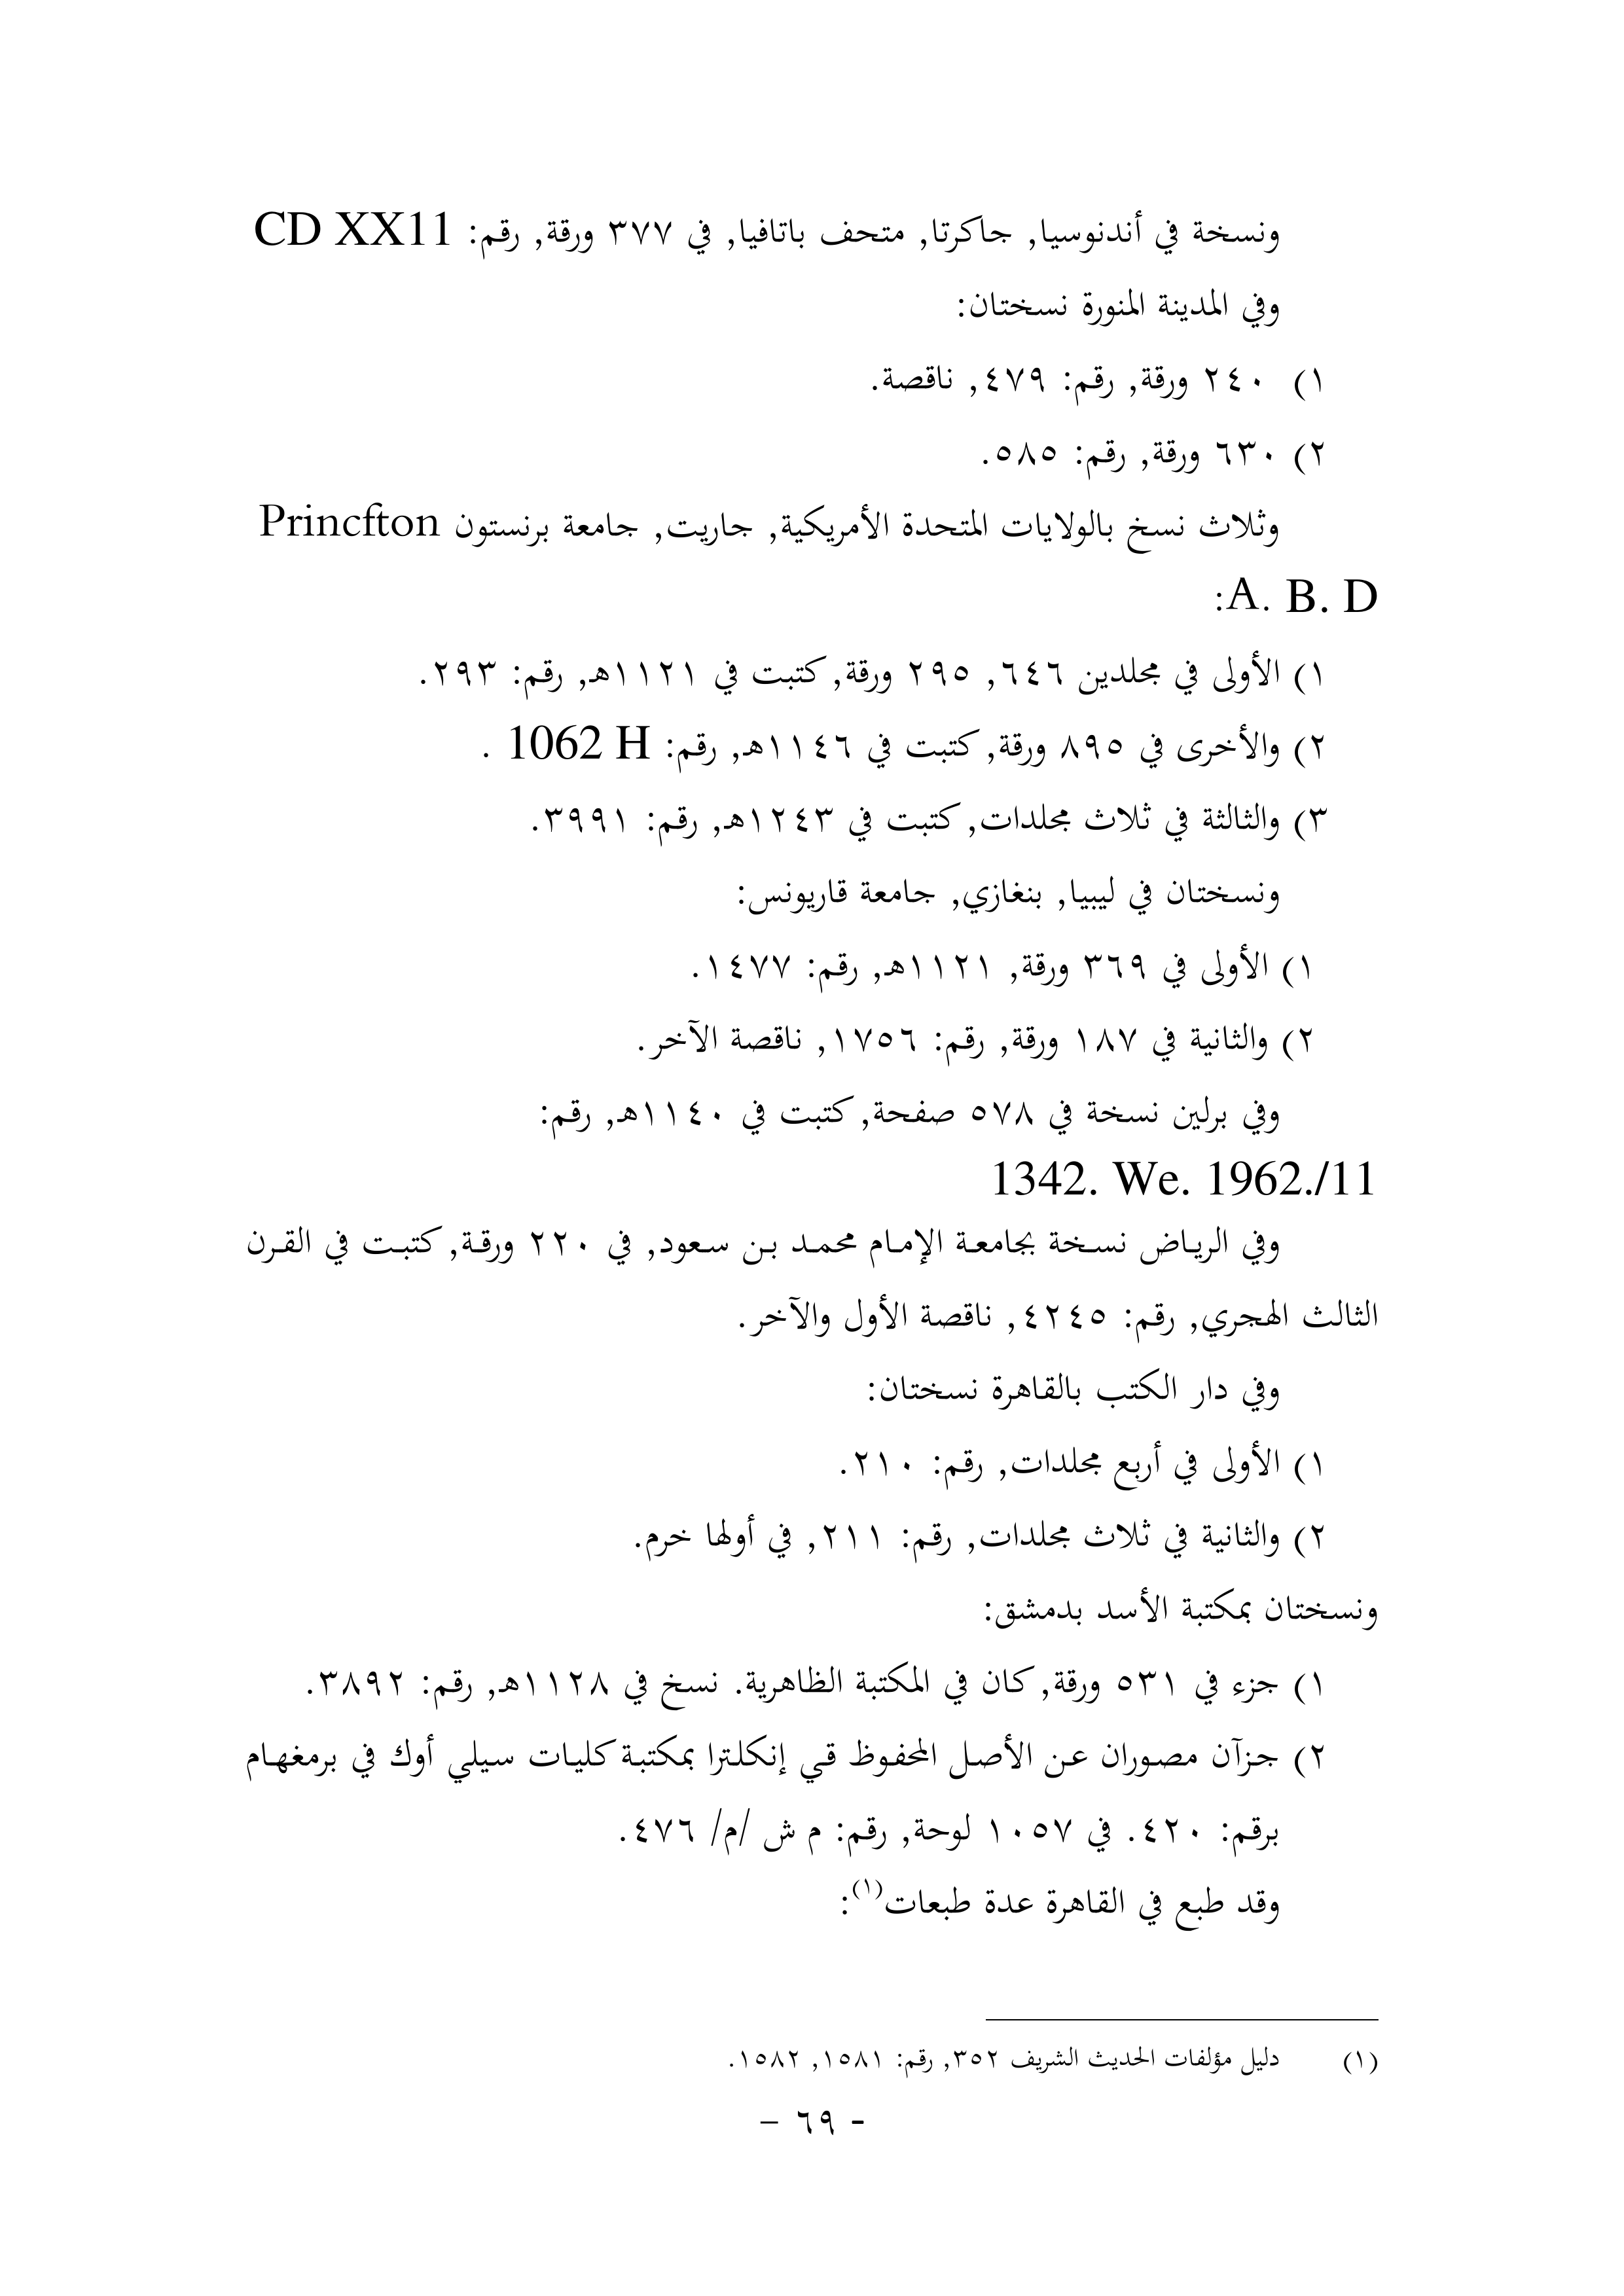 ونسخة في أندنوسيا, جاكرتا, متحف باتافيا, في ٣٧٧ ورقة, رقم: CD XX11
وفي المدينة المنورة نسختان:
١) ٢٤٠ ورقة, رقم: ٤٧٩, ناقصة.
٢) ٦٣٠ ورقة, رقم: ٥٨٥.
وثلاث نسخ بالولايات المتحدة الأمريكية, جاريت, جامعة برنستون Princfton
A. B. D:
١) الأولى في مجلدين ٦٤٦, ٢٩٥ ورقة, كتبت في ١١٢١هـ, رقم: ٢٩٣.
٢) والأخرى في ٨٩٥ ورقة, كتبت في ١١٤٦هـ, رقم: 1062 H .
٣) والثالثة في ثلاث مجلدات, كتبت في ١٢٤٣هـ, رقم: ٣٩٩١.
ونسختان في ليبيا, بنغازي, جامعة قاريونس:
١) الأولى في ٣٦٩ ورقة, ١١٢١هـ, رقم: ١٤٧٧.
٢) والثانية في ١٨٧ ورقة, رقم: ١٧٥٦, ناقصة الآخر.
وفي برلين نسخة في ٥٧٨ صفحة, كتبت في ١١٤٠هـ, رقم:
1342. We. 1962./11
وفي الرياض نسخة بجامعة الإمام محمد بن سعود, في ٢٢٠ ورقة, كتبت في القرن
الثالث الهجري, رقم: ٤٢٤٥, ناقصة الأول والآخر.
وفي دار الكتب بالقاهرة نسختان:
١) الأولى في أربع مجلدات, رقم: ٢١٠.
٢) والثانية في ثلاث مجلدات, رقم: ٢١١, في أولها خرم.
ونسختان بمكتبة الأسد بدمشق:
١) جزء في ٥٣١ ورقة, كان في المكتبة الظاهرية. نسخ في ١١٢٨هـ, رقم: ٣٨٩٢.
٢) جزآن مصوران عن الأصل المحفوظ قي إنكلترا بمكتبة كليات سيلي أوك في برمغهام
برقم: ٤٢٠. في ١٠٥٧ لوحة, رقم: م ش /م/ ٤٧٦.
وقد طبع في القاهرة عدة طبعات(١):
(١) دليل مؤلفات الحديث الشريف ٣٥٢, رقم: ١٥٨١, ١٥٨٢.
- ٦٩ –